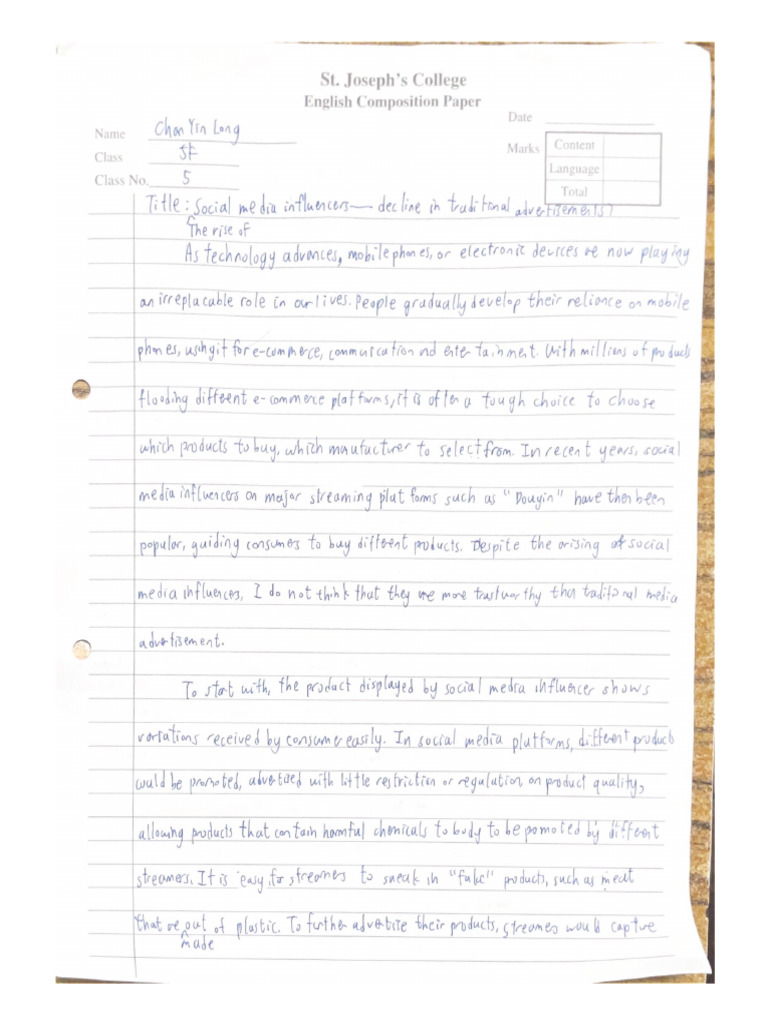 St. Joseph's College
English Composition Paper
Date
Name Chan Yin Long
Class 5F
Class No. 5
Marks Content
Language
Total
Title: Social media influencers — decline in traditional advertisements?
The rise of
As technology advances, mobile phones, or electronic devices are now playing
an irreplacable role in our lives. People gradually develop their reliance on mobile
phones, using it for e-commerce, communication and entertainment. With millions of products
flooding different e-commerce platforms, it is often a tough choice to choose
which products to buy, which manufacturer to select from. In recent years, social
media influencers on major streaming platforms such as "Douyin" have then been
popular, guiding consumers to buy different products. Despite the arising of social
media influences, I do not think that they are more trustworthy than traditional media
advertisement.
To start with, the product displayed by social media influencer shows
variations received by consumer easily. In social media platforms, different products
would be promoted, advertized with little restriction or regulation on product quality,
allowing products that contain harmful chemicals to body to be pomoted by different
streamers. It is easy for streamers to sneak in "fake" products, such as meat
that are out of plastic. To further advertize their products, streamers would capture
made